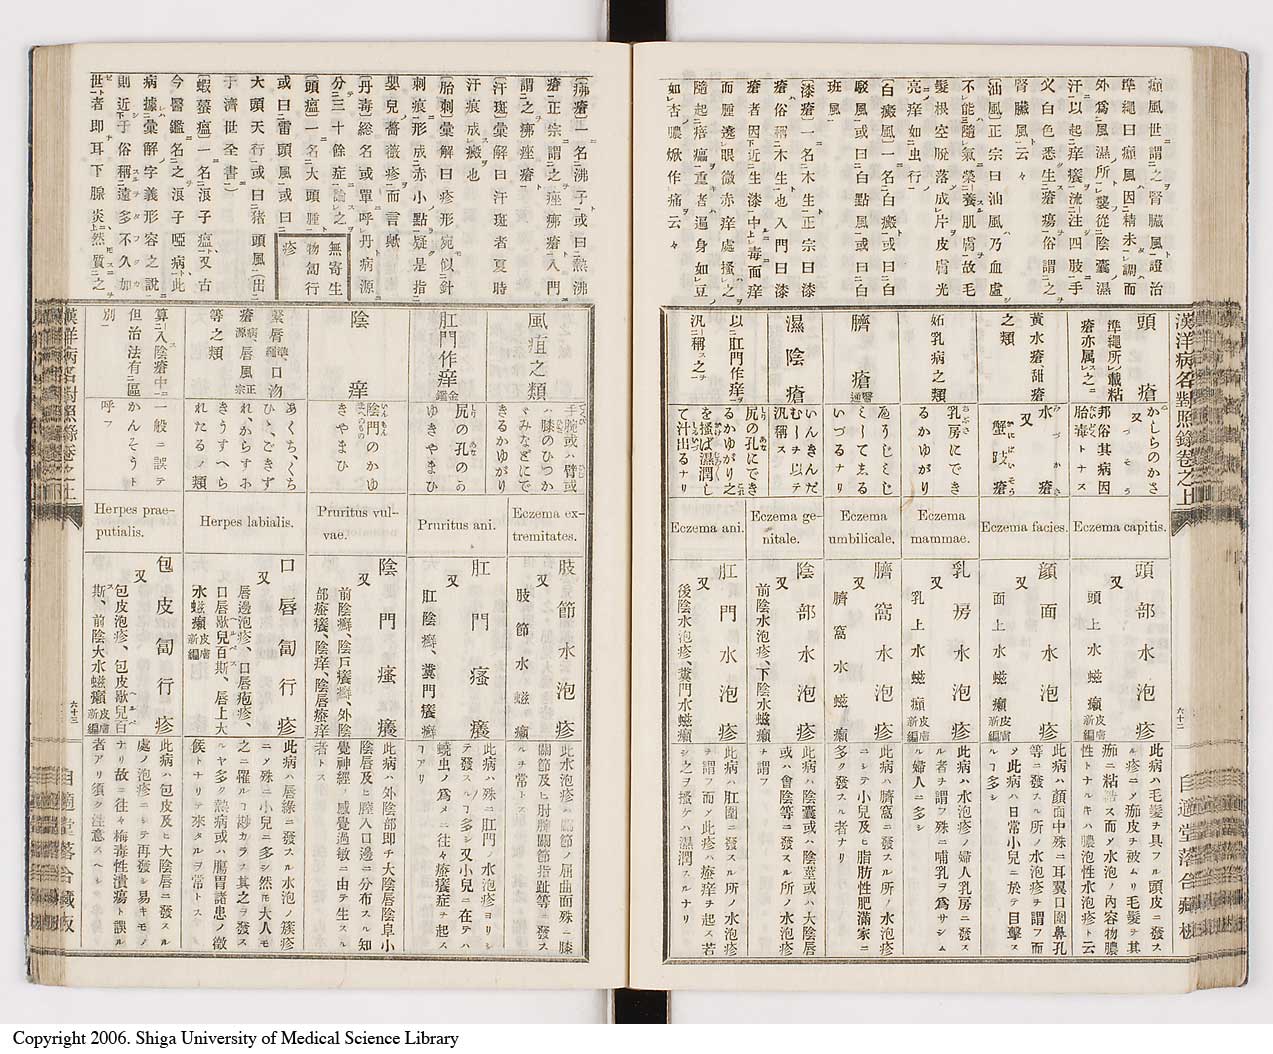 癩風世謂之腎臟風證治
準繩曰癩風因精未調而
外爲風濕所襲從陰囊濕
汗以起痒癢流注四肢手
火白色悉生瘡瘍俗謂之
腎臟風云々
〔油風〕正宗曰油風乃血虛
不能隨氣榮養肌膚故毛
髮根空脫落成片皮膚光
亮痒如虫行
〔白癜風〕一名白癜或曰白
駁風或曰白點風或曰白
班風
〔漆瘡〕一名木生正宗曰漆
瘡俗稱木生也入門曰漆
瘡者因近生漆中毒而痒
而腫邊眼微赤痒處搔之
隨起㾦㿔重者遍身如豆
如杏膿焮作痛云々
漢洋病名對照錄卷之上
頭瘡
準繩所載粘
瘡亦属之
黃水瘡甜瘡
之類
妬乳病之類
臍瘡醫通
濕陰瘡
以肛門作痒
汎稱之
かしらのかさ
又づそう
邦俗其病因
胎毒トナス
水瘡
又
蟹䟦瘡
乳房にでき
るかゆがり
いんきんだ
むしチ以テ
汎稱ス
尻の孔にでき
るかゆがり之
を搔ば濕潤し
て汁出るナリ
Eczema capitis.
Eczema facies.
Eczema
mammeae.
Eczema
umbilicale.
Eczema ge-
nitale.
Eczema ani.
頭部水泡疹
又
頭上水蝋癩皮膚新編
顔面水泡疹
又
面上水蝋癩皮膚新編
乳房水泡疹
又
乳上水蝋癩皮膚新編
臍窩水泡疹
又
臍窩水蝋癩
陰部水泡疹
又
前陰水泡疹、下陰水蝋癩
肛門水泡疹
又
後陰水泡疹、糞門水蝋癩
此病ハ毛髮チ具フル頭皮ニ發ス
ル疹ニメ痂皮チ被ムリ毛髮チ其
痂ニ粘誥ス而メ水泡ノ内容物膿
性トナルキハ膿泡性水泡疹ト云
此病ハ顔面中殊ニ耳翼口圍鼻孔
等ニ發スル所ノ水泡疹チ謂フ而
メ此病ハ日常小兒ニ於テ目擊ス
ルヿ多シ
此病ハ水泡疹ノ婦人乳房ニ發ス
ル者チ謂フ殊ニ哺乳ヲ爲サシム
ル婦人ニ多シ
此病ハ臍窩ニ發スル所ノ水泡疹
ニシテ小兒及ヒ脂肪性肥滿家ニ
多ク發スル者ナリ
此病ハ陰囊或ハ陰莖或ハ大陰唇
或ハ會陰等ニ發スル所ノ水泡疹
チ謂フ
此病ハ肛圍ニ發スル所ノ水泡疹
チ謂フ而メ此疹ハ瘙痒チ起ス若
シ之ヲ搔ケハ濕潤スルナリ
六十二
自適堂落合藏板
〔疿瘡〕一名沸子或曰熱沸
瘡正宗謂之痤疿瘡入門
謂之疿痤瘡
〔汗斑〕彙解曰汗斑者夏時
汗痕成瘢也
〔胎刺〕彙解曰疹形宛似針
刺痕形成赤小點疑是指
嬰兒薔薇疹而言歟
〔丹毒〕總名或單呼丹病源
分三十餘症論之
〔頭瘟〕一名大頭腫
或曰雷頭風或曰
大頭天行或曰猪頭風出
于濟世全書
〔蝦蟇瘟〕一名浪子瘟又古
今醫鑑名之浪子啞病此
病據彙解字義形容之說
則近于俗稱遠多不久加
世者即耳下腺炎然質之
無寄生
物匐行
疹
風疽之類
肛門作痒金鑑
陰痒
緊唇準繩口吻
瘡病源唇風正宗
等之類
算入陰瘡中
但治法有區
別
手腕或ハ臂或
ハ膝のひつか
がみなどにで
きるかゆがり
尻の孔のか
ゆきやまひ
陰門のかゆ
きやまひ
あくち、くち
ひゞ、ごきず
れからすお
きうすへら
れたるノ類
一般ニ誤テ
かんそうト
呼フ
Eczema ex-
tremitates.
Pruritus ani.
Pruritus vul-
vae.
Herpes labialis.
Herpes prae-
putialis.
肢節水泡疹
又
肢節水蝋癩
肛門瘙癢
又
肛陰癬、糞門癢癬
陰門瘙癢
又
前陰癬、陰戸癢癬、外陰
部瘙癢、陰痒、陰唇瘙痒
口唇匐行疹
又
唇邊泡疹、口唇疱疹、
口唇歇兒百斯、唇上大
水蝋癩皮膚新編
包皮匐行疹
又
包皮泡疹、包皮歇兒百
斯、前陰大水蝋癩皮膚新編
此水泡疹ハ關節ノ屈曲面殊ニ膝
關節及ヒ肘腫關節指趾等ニ發ス
ルヲ常トス
此病ハ殊ニ肛門ノ水泡疹ヨリシ
テ發スルヿ多シ又小兒ニ在テハ
蟯虫ノ爲メニ往々瘀癢症チ起ス
ヿアリ
此病ハ外陰部即チ大陰唇陰阜小
陰唇及ヒ膣入口邊ニ分布スル知
覺神經ノ感覺過敏ニ由テ生スル
者トス
此病ハ唇緣ニ發スル水泡ノ簇疹
ニメ殊ニ小兒ニ多シ然モ大人モ
之ニ罹ルヿ尠カラス其之ヲ發ス
ルヤ多ク熱病或ハ腸胃諸患ノ徵
候トナリテ來タルヲ常トス
此病ハ包皮及ヒ大陰唇ニ發スル
處ノ泡疹ニシテ再發シ易キモノ
ナリ故ニ往々梅毒性潰瘍ト誤ル
者アリ須ク注意スヘシ
漢洋病名對照錄卷之上
六十三
自適堂落合藏板
Copyright 2006. Shiga University of Medical Science Library